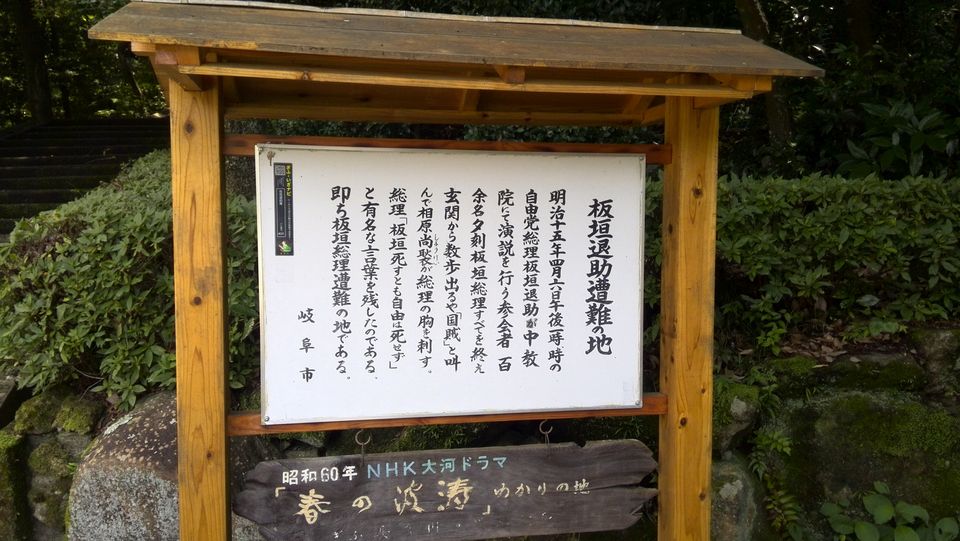 板垣退助遭難の地
明治十五年四月六日午後一時時の
自由党総理板垣退助が中教
院にて演説を行う参会者 百
余名夕刻板垣総理すべてを終え
玄関から数歩出るや「国賊」と叫
んで相原尚褧が総理の胸を刺す。
総理「板垣死すとも自由は死せず」
と有名な言葉を残したのである。
即ち板垣総理遭難の地である。
岐阜市
昭和60年 NHK大河ドラマ
「春の波涛」ゆかりの地